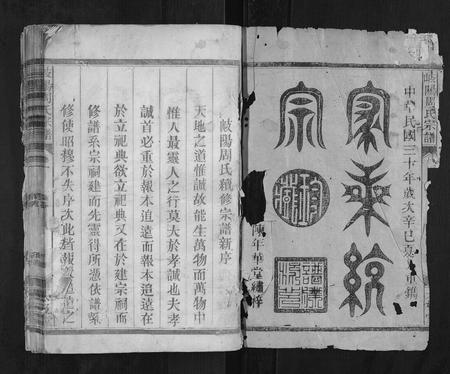 岐陽周氏宗譜
中華民國三十年歲次辛巳
家乘統
宗
年華堂繡梓
岐陽周氏續修宗譜新序
天地之道惟誠故能生萬物而萬物中
惟人最靈人之行莫大於孝誠也夫孝
誠首必重於報本追遠而報本追遠在
於立祀典欲立祀典又在於建宗祠而
修譜系宗祠建而先靈得所憑依譜系
修使昭穆不失序次此皆報本追遠之